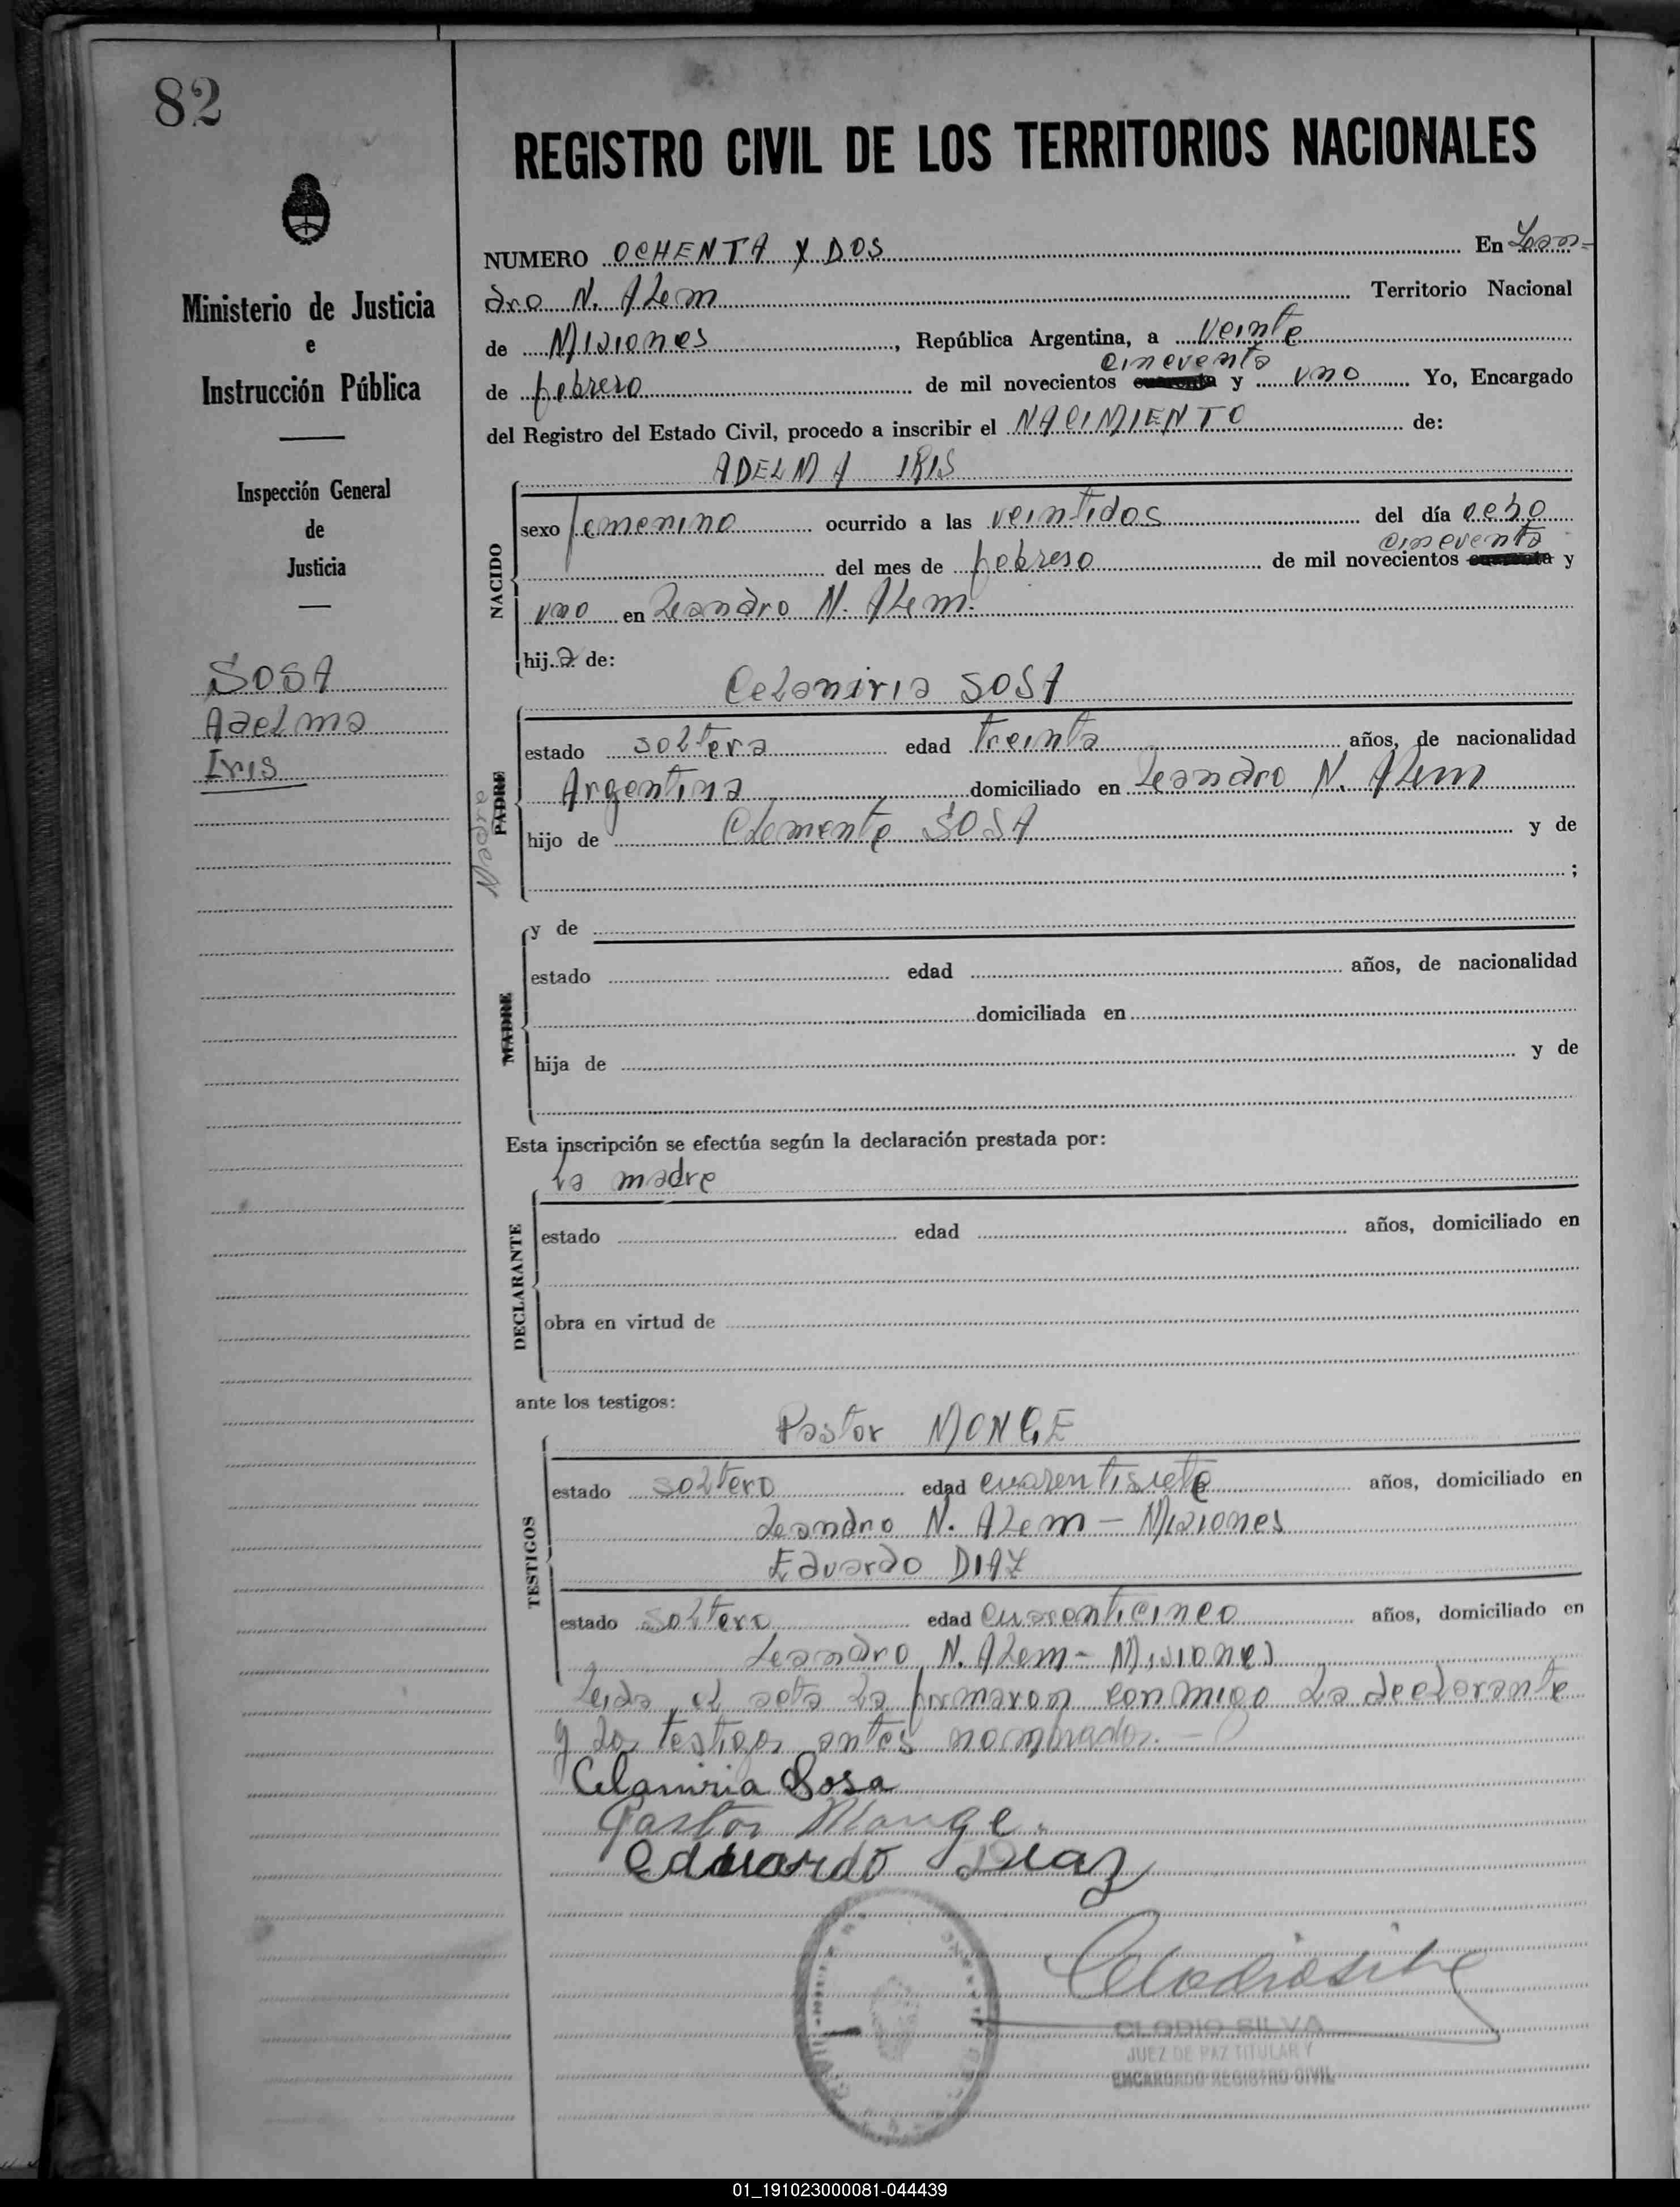 82
REGISTRO CIVIL DE LOS TERRITORIOS NACIONALES
Ministerio de Justicia
e
Instrucción Pública
Inspección General
de
Justicia
SOSA
Adelma
Iris
NUMERO OCHENTA Y DOS En Lean-
dro N. Alem Territorio Nacional
de Misiones, República Argentina, a veinte
cincuenta
de febrero de mil novecientos cuarenta y uno Yo, Encargado
del Registro del Estado Civil, procedo a inscribir el NACIMIENTO de:
ADELMA IRIS
NACIDO
sexo femenino ocurrido a las veintidos del día ocho
cincuenta
del mes de febrero de mil novecientos cuarenta y
uno en Leandro N. Alem.
hija de:
Celaniria SOSA
PADRE
Madre
estado soltera edad treinta años, de nacionalidad
Argentina domiciliado en Leandro N. Alem
hijo de Clemente SOSA y de
;
MADRE
y de
estado edad años, de nacionalidad
domiciliada en
hija de y de
Esta inscripción se efectúa según la declaración prestada por:
la madre
DECLARANTE
estado edad años, domiciliado en
obra en virtud de
ante los testigos:
Pastor MONGE
TESTIGOS
estado soltero edad cuarentisiete años, domiciliado en
Leandro N. Alem - Misiones
Eduardo DIAZ
estado soltero edad cuarenticinco años, domiciliado en
Leandro N. Alem - Misiones
Leida el acta la firmaron conmigo la declarante
y los testigos antes nombrados. -
Celaniria Sosa
Pastor Monge.
Eduardo Diaz
Clodio Silva
CLODIO SILVA
JUEZ DE PAZ TITULAR Y
ENCARGADO REGISTRO CIVIL
01_191023000081-044439